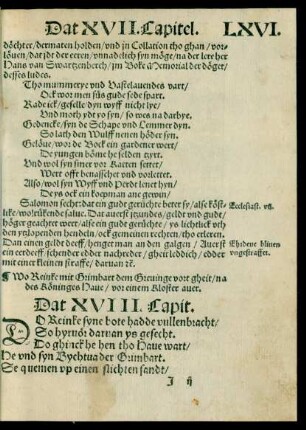 Dat XVII. Capitel. LXVI.
döchter/ dermaten holden/ vnd in Collation tho ghan/ vor-
löuen/ dat jdt der eeren/ vnnadelich syn möge/ na der lere her
Hans van Swartzenberch/ jm Boke Memorial der döget/
desses ludes.
Tho mummerye vnd Vastelauendes vart/
Ock wor men süs gude sede spart.
Rade ick/ geselle dyn wyff nicht lye/
Vnd moth ydt yo syn/ so wes na darbye.
Gedencke/ syn de Schape vnd Lemmer dyn.
So lath den Wulff nenen höder syn.
Gelöue/ wor de Bock ein gardener wert/
De yungen böme he selden
Vnd wol syn süuer vor Katten settet/
Wert offt benasschet vnd vorlettet.
Also/ wol syn Wyff vnd Perdt lenet hyn/
De ys ock ein koepman ane gewyn.
Salomon secht: dat ein gude gerüchte beter sy/ alse köst-
like/ wolrükende salue. Dat auerst jtzundes/ geldt vnd gudt/
höger geachtet wert/ alse ein gude gerüchte/ ys lichtlick vth
den ytzlopenden hendelen/ ock gemeinen rechten/ tho erleren.
Dan einen geldt deeff/ henget man an den galgen/ Auerst
ein eerdeeff/ schender edder nachreder/ gheit leddich/ edder
mit einer kleinen straffe/ daruan etc.
Ecclesiast. vij.
Ehedeue bliuen
vngestraffet.
¶ Wo Reinke mit Grimbart dem Greuinge vort gheit/ na
des Köninges Haue/ vor einem Kloster auer.
Dat XVIII. Capit.
DO Reinke syne bote hadde vullenbracht/
So hyruör daruan ys gesecht.
Do ghinck he hen tho Haue wart/
He vnd syn Bychtuader Grimbart.
Se quemen vp einen slichten sandt/
J ij